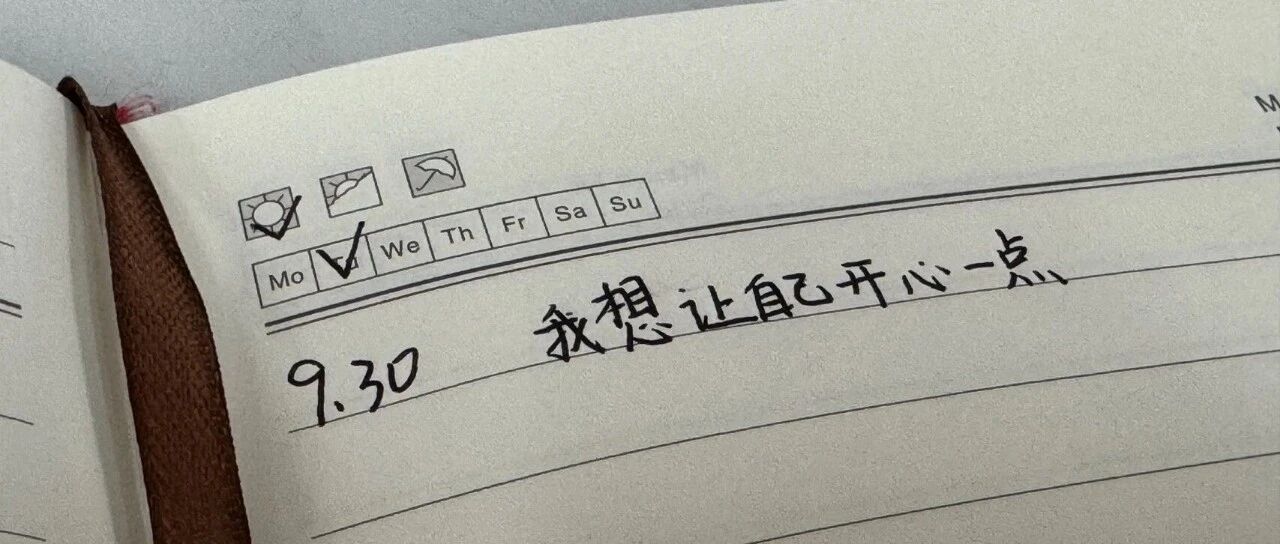 Mo Tu We Th Fr Sa Su
9.30 我想让自己开心一点